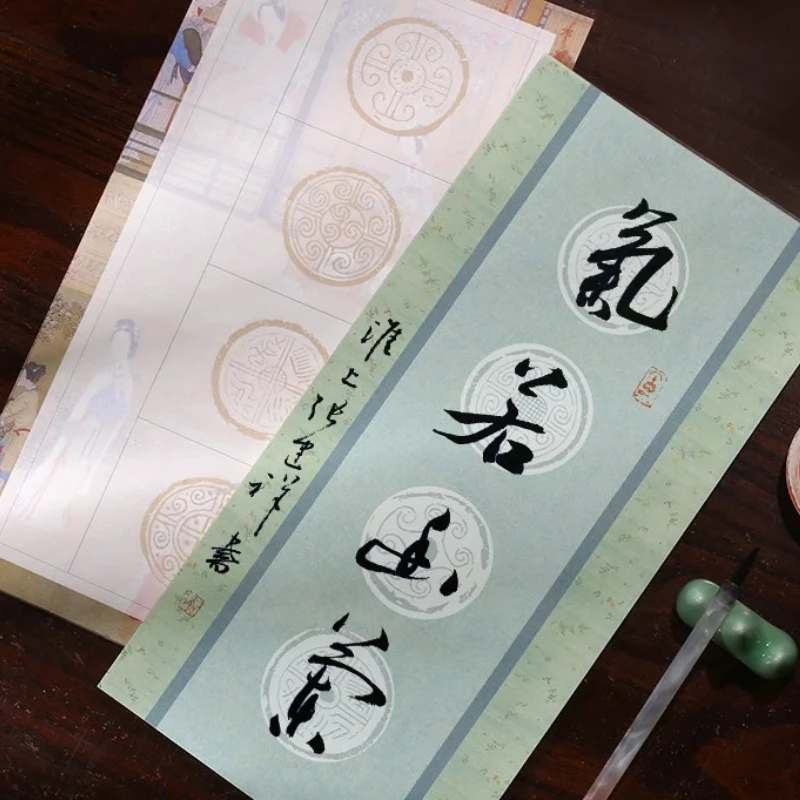 氣若幽蘭
淮上张建祥書